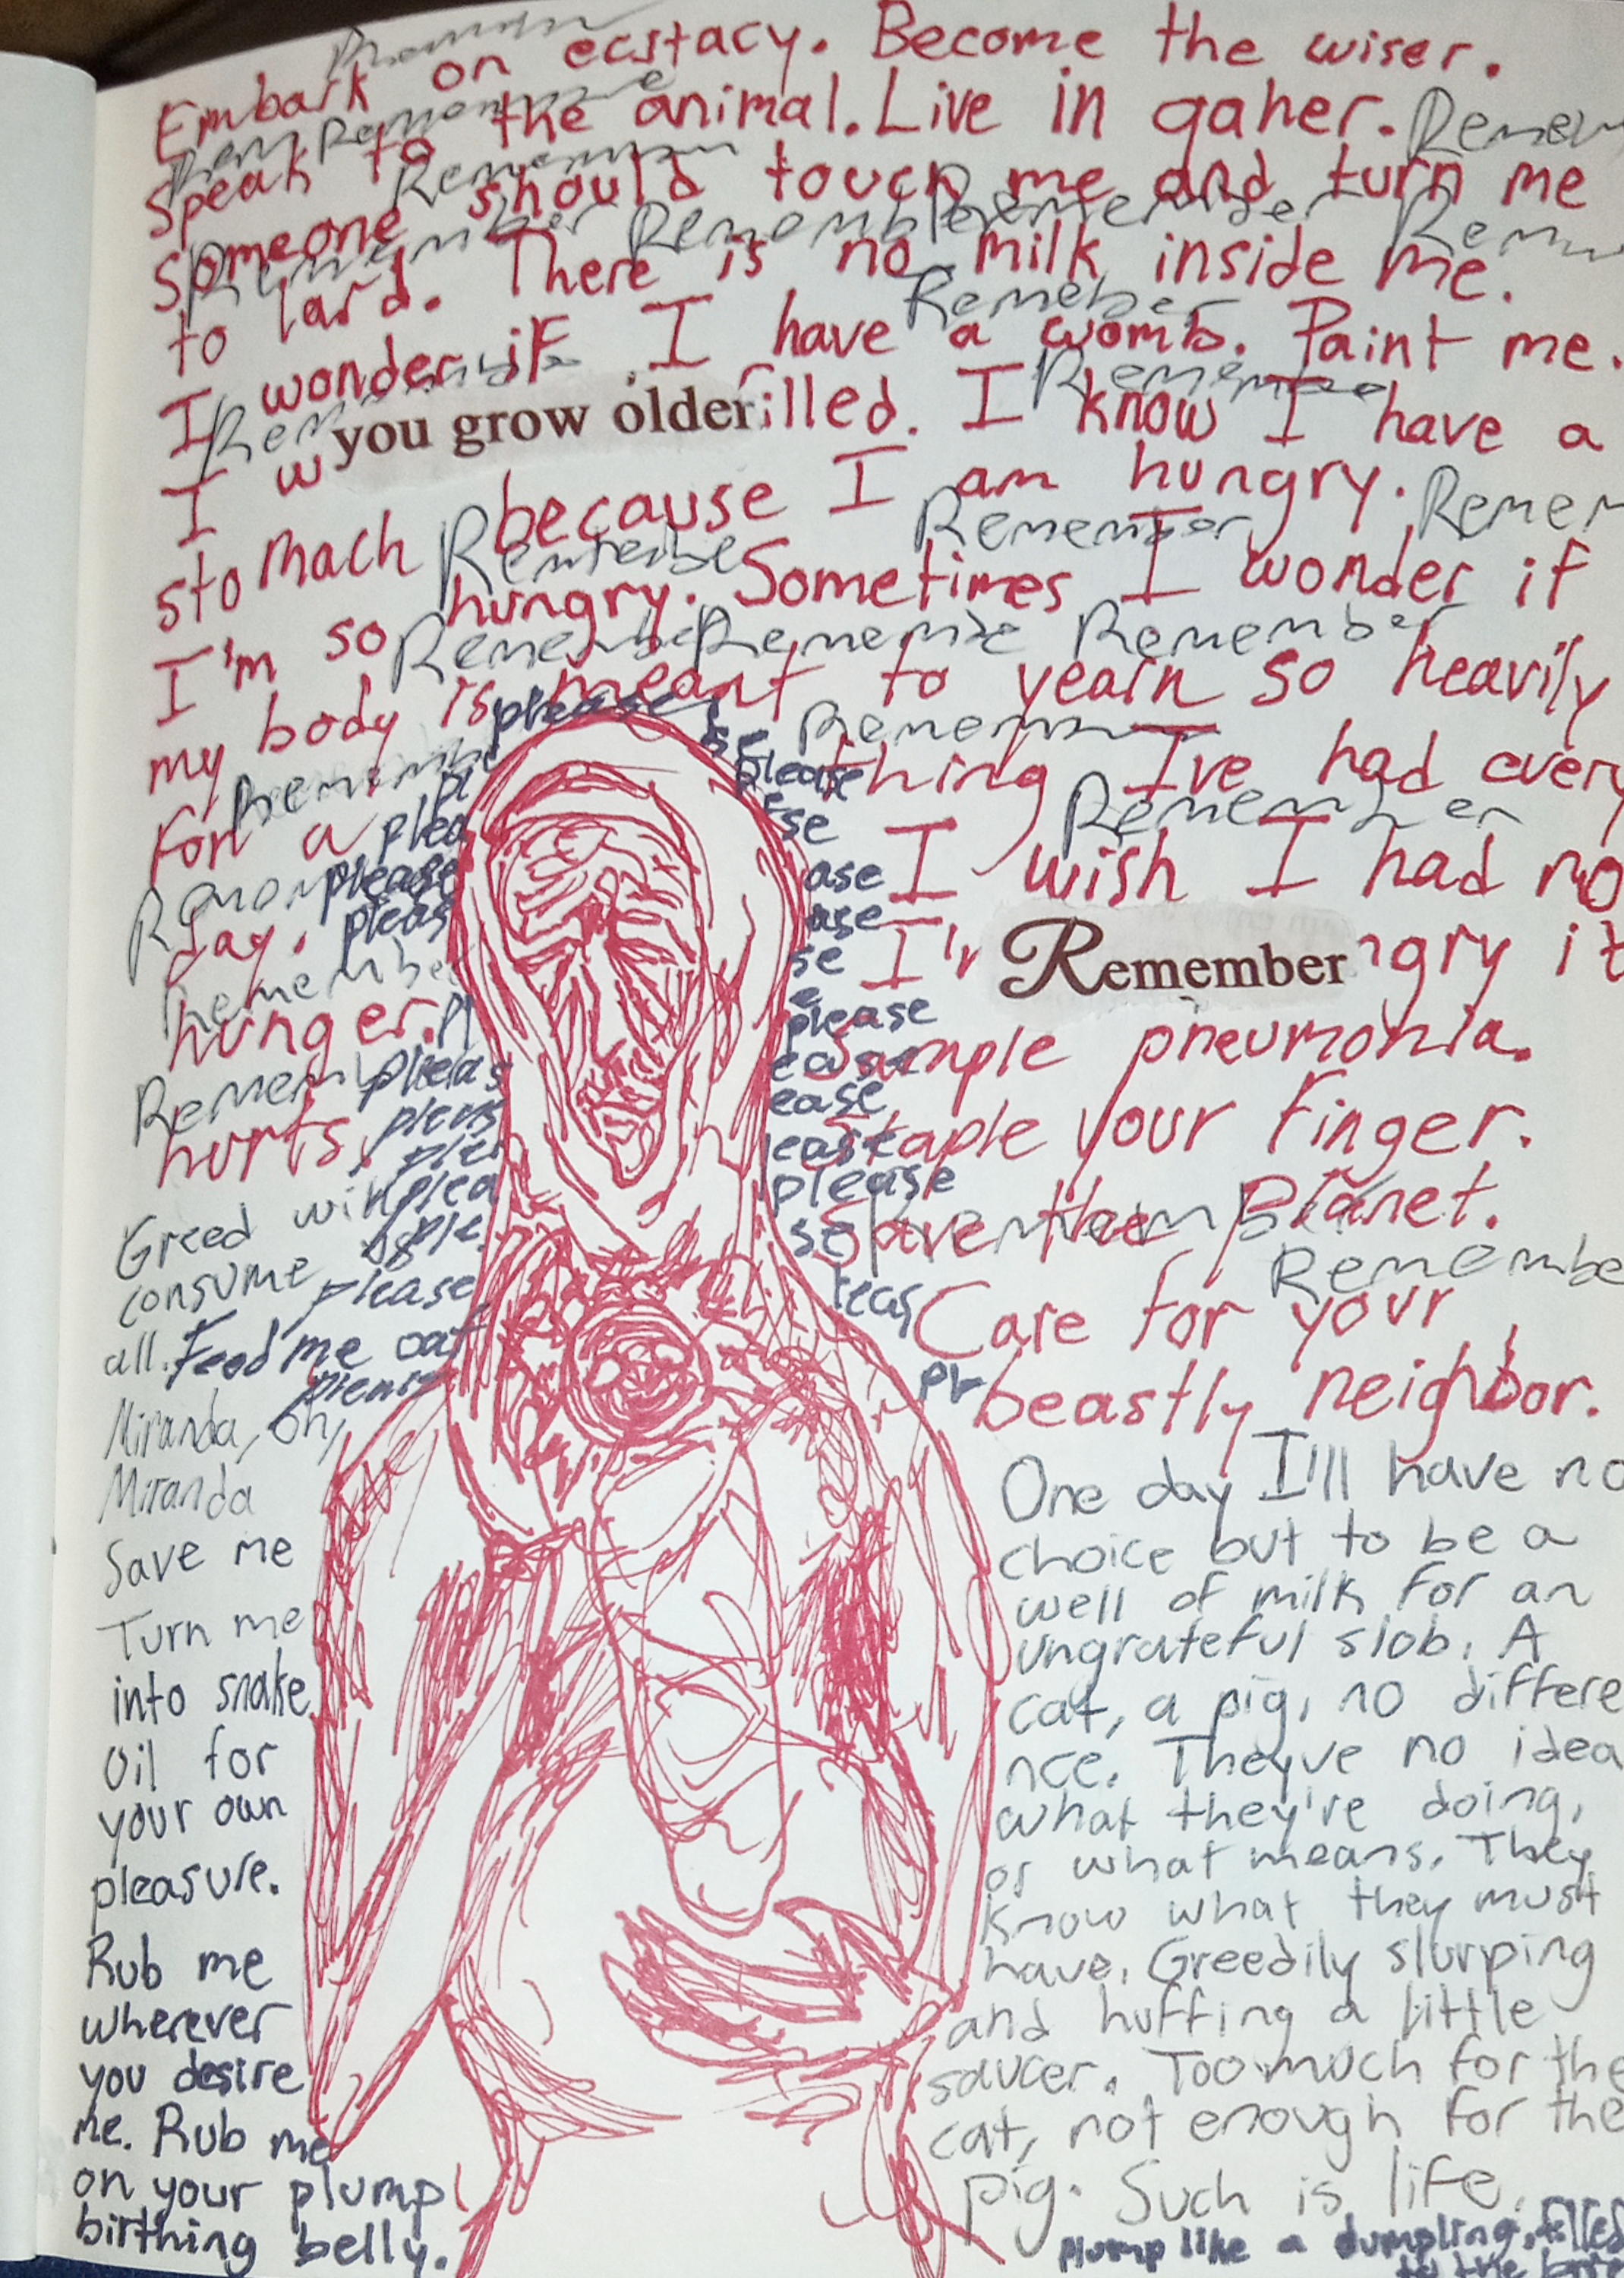 Embark on ecstacy. Become the wiser.
Speak to the animal. Live in gaher.
Someone should touch me and turn me
to lard. There is no milk inside me.
I wonder if I have a womb. Paint me.
I w you grow older illed. I know I have a
stomach because I am hungry.
I'm so hungry. Sometimes I wonder if
my body is meant to yearn so heavily
for a thing I've had every
day. I wish I had no
hunger. I'm Remember ngry it
hurts. Sample pneumonia.
Staple your finger.
Save the Planet.
Care for your
beastly neighbor.
Remember
Remember
Remember
Remember
Remeber
Remember
Remember
Remember
Remember
please
please
please
please
please
please
Greed will
consume
all. Feed me oat
Miranda, Oh,
Miranda
Save me
Turn me
into snake
oil for
your own
pleasure.
Rub me
wherever
you desire
me. Rub me
on your plump
birthing belly.
One day I'll have no
choice but to be a
well of milk for an
ungrateful slob. A
cat, a pig, no differe
nce. Theyve no idea
what they're doing,
or what means. They
know what they must
have. Greedily slurping
and huffing a little
saucer. Too much for the
cat, not enough for the
pig. Such is life.
plump like a dumpling, filled
to the